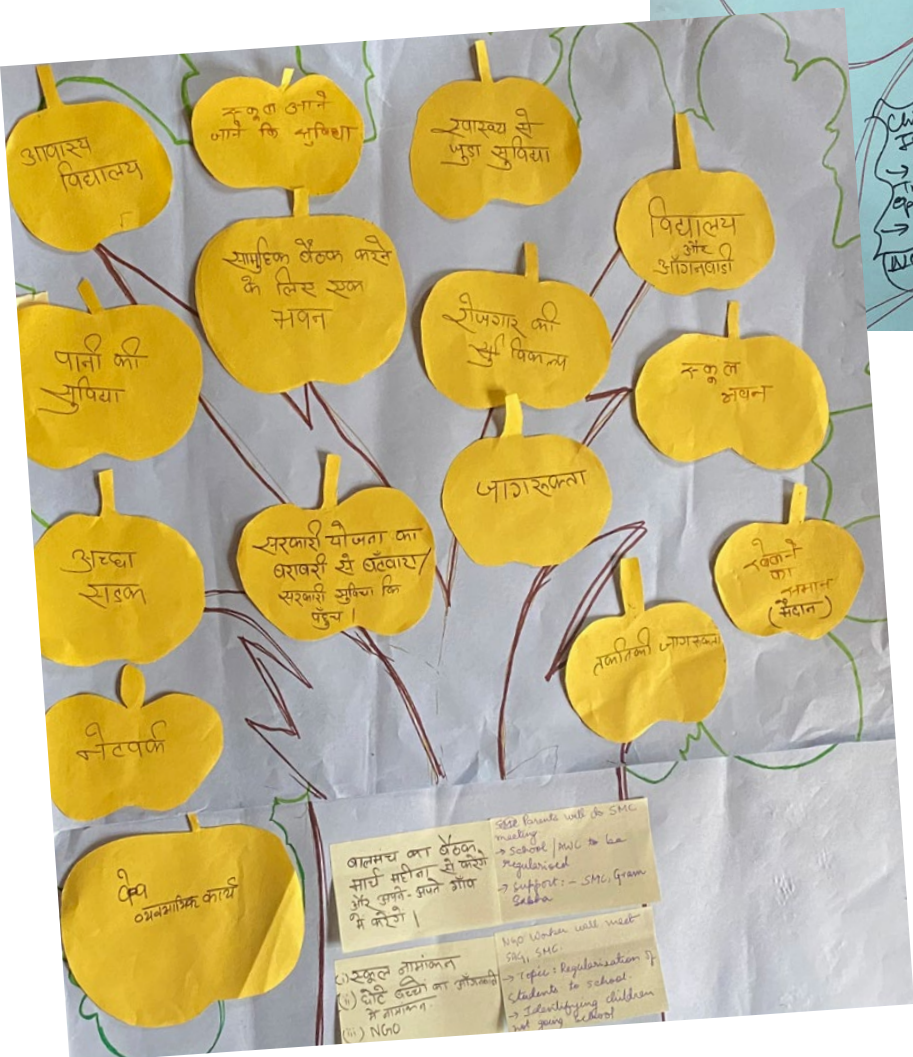 आवास्य
विद्यालय
स्कूल आने
जाने कि सुविधा
स्वास्थ्य से
जुडा सुविधा
विद्यालय
और
आँगनवाडी
सामुहिक बैठक करने
के लिए एक
भवन
पानी की
सुविधा
रोजगार की
विकल्प
स्कूल
भवन
जागरूकता
अच्छा
सडक
सरकारी योजना का
बराबरी से बँटवारा/
सरकारी सुविधा कि
पहुँच।
खेलने
का
समान
(मैदान)
तकनिकी जागरूकता
नेटवर्क
कार्य
बालमंच का बैठक
मार्च महीना से करेंगे
और अपने-अपने गाँव
मे करेंगे।
Parents will do SMC
meeting
→ School / AWC to be
regularised
→ Support: - SMC, Gram
Sabha
(i) स्कूल नामांकन
(ii) छोटे बच्चो का आँगनबाडी
मे नामांकन.
(iii) NGO
NGO Worker will meet
SMC.
→ Topic: Regularisation of
Students to school.
→ Identifying children
not going School